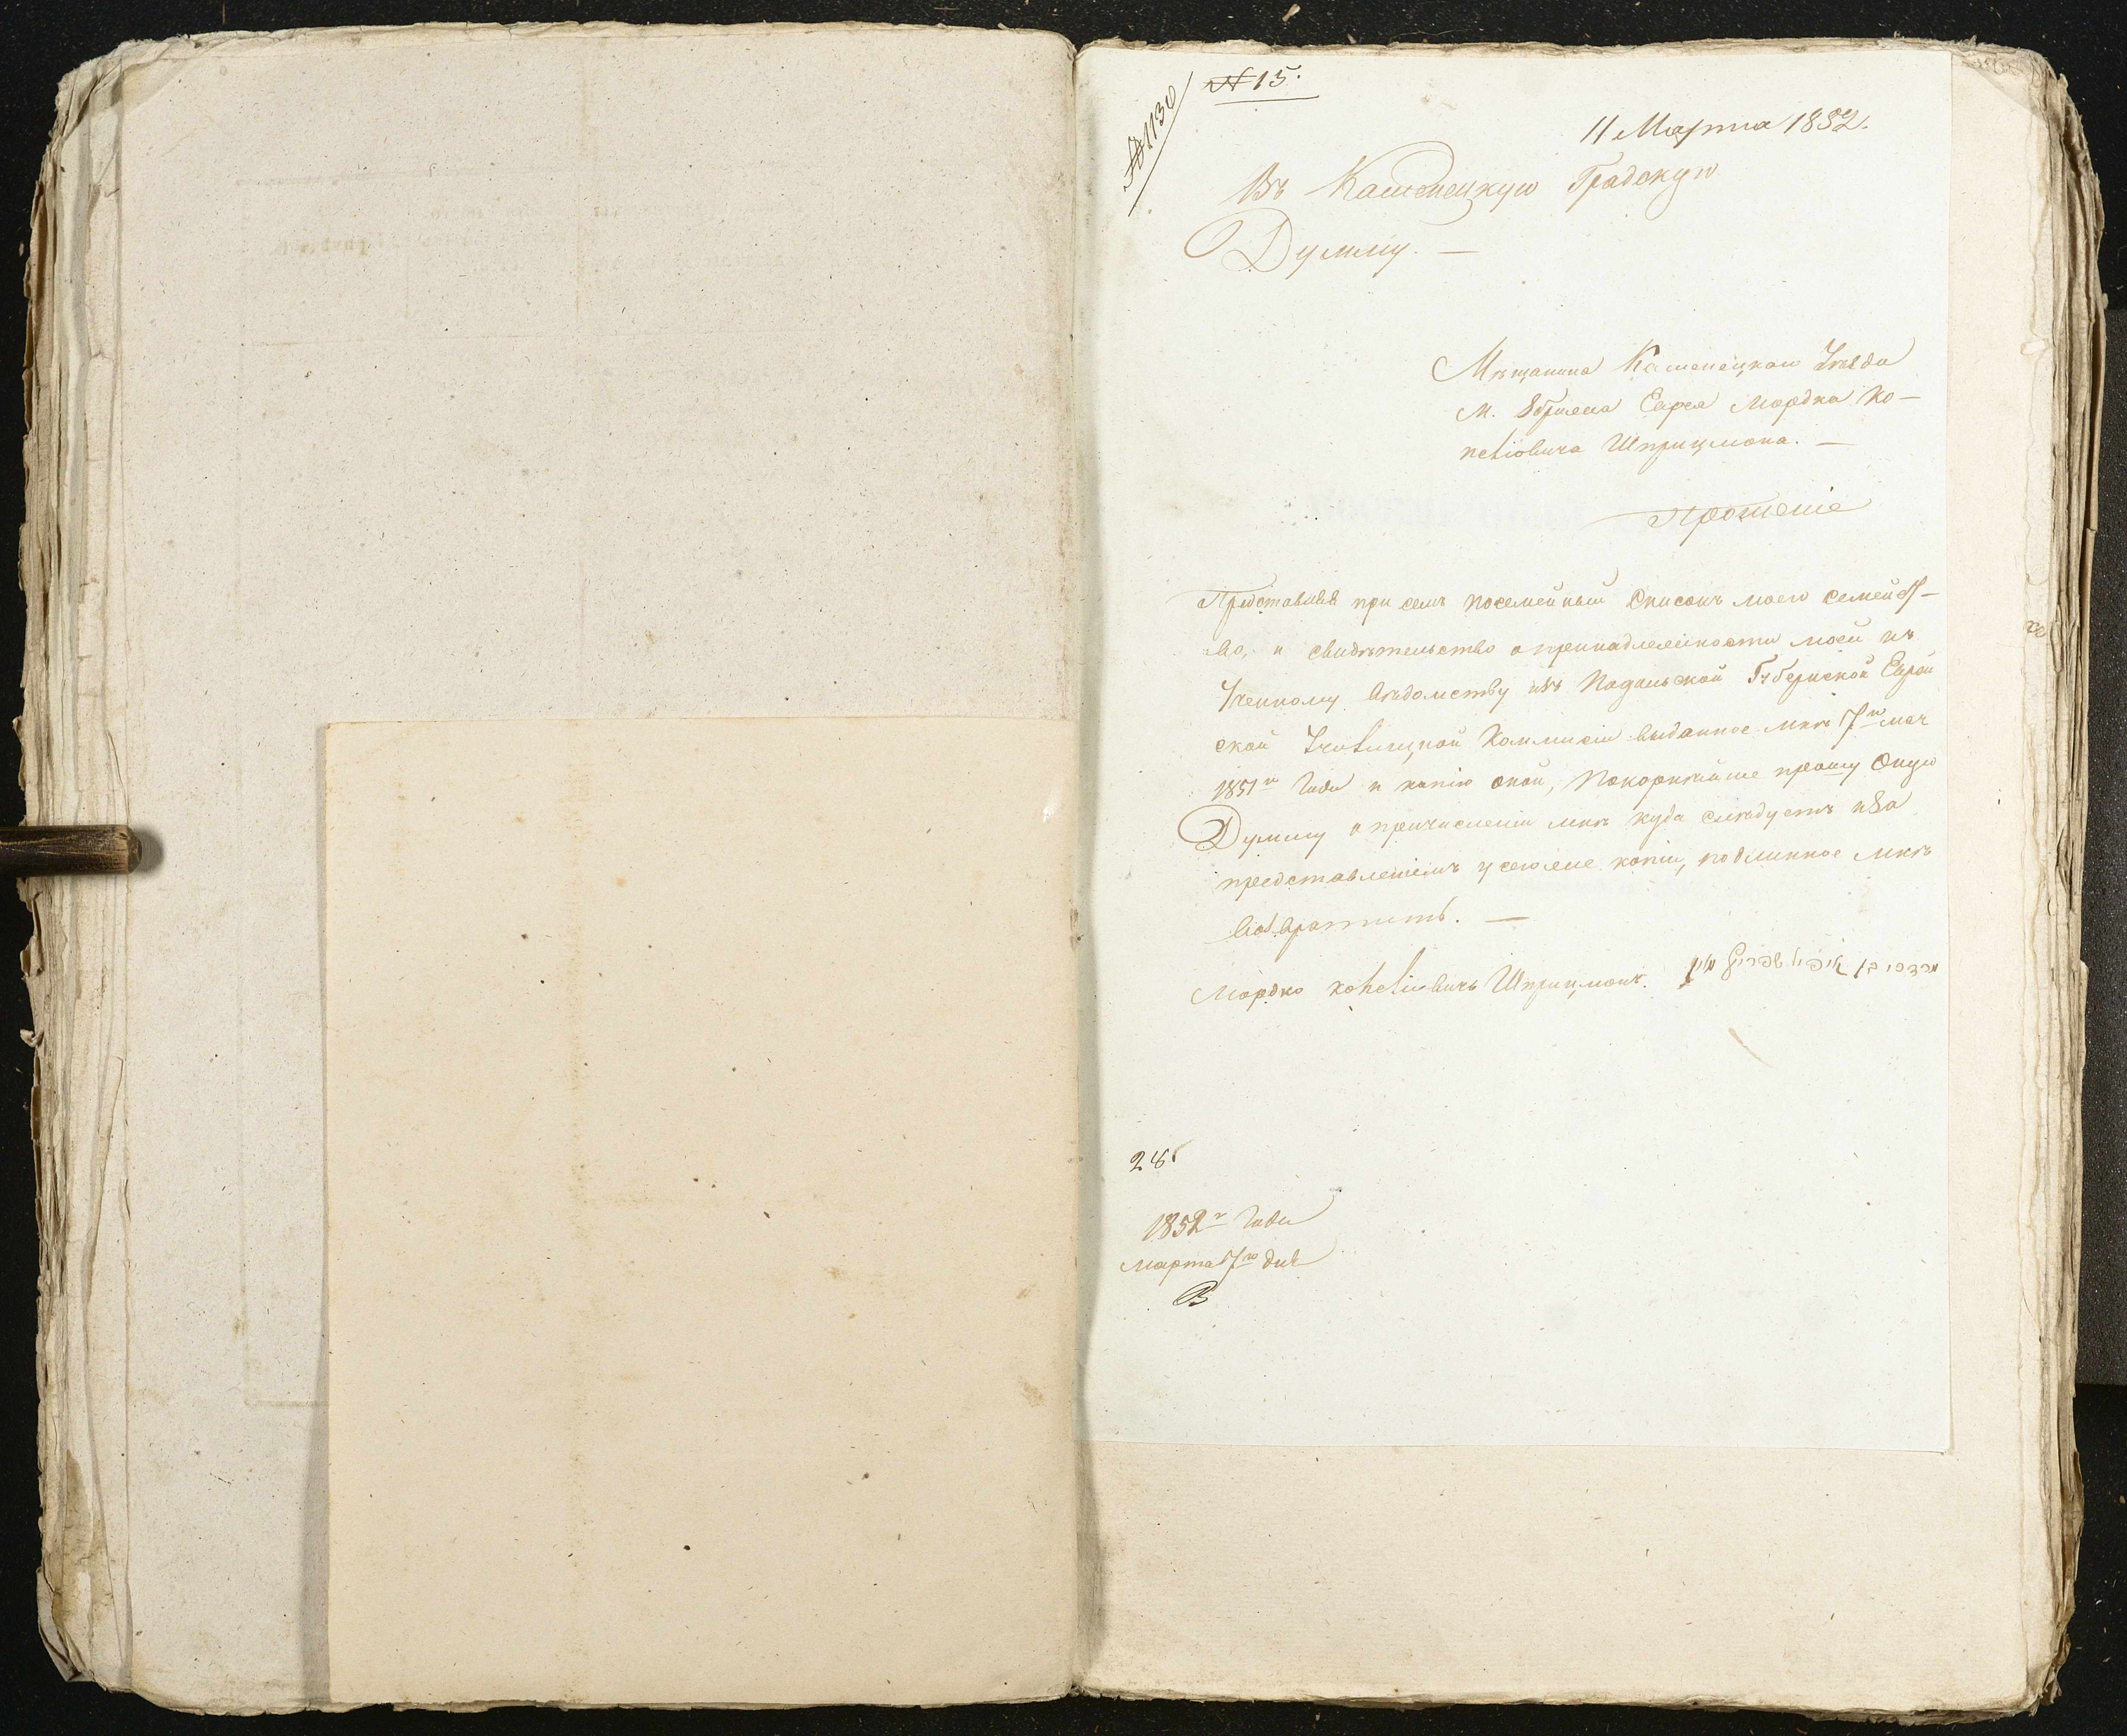 № 1130
№ 15.
11 Марта 1852.
Въ Каменецкую Градскую
Думму. —
Мѣщанина Каменецкаго Уѣзда
М. Еврея Мордка Ко-
пеliовича Шприцмона. —
Прошеніе
Представивъ при семъ посемейный списокъ моего семейст-
во, и свидѣтельство о принадлежности моей къ
ученному вѣдомству изъ Подольской Губернской Еврей
ской Училищной Коммисіи выданное мнѣ 7го мая
1851го Года и копію оной, покорнѣйше прошу Оную
Думму о причисленіи мнѣ куда слѣдуетъ и за
представленіемъ у сего копіи, подлинное мнѣ
возвратить. —
Мордко Копеliовичъ Шприцмонъ. מרדכי בן קאפיל שפריץ מאן
1852го Года
марта 7го дня
В